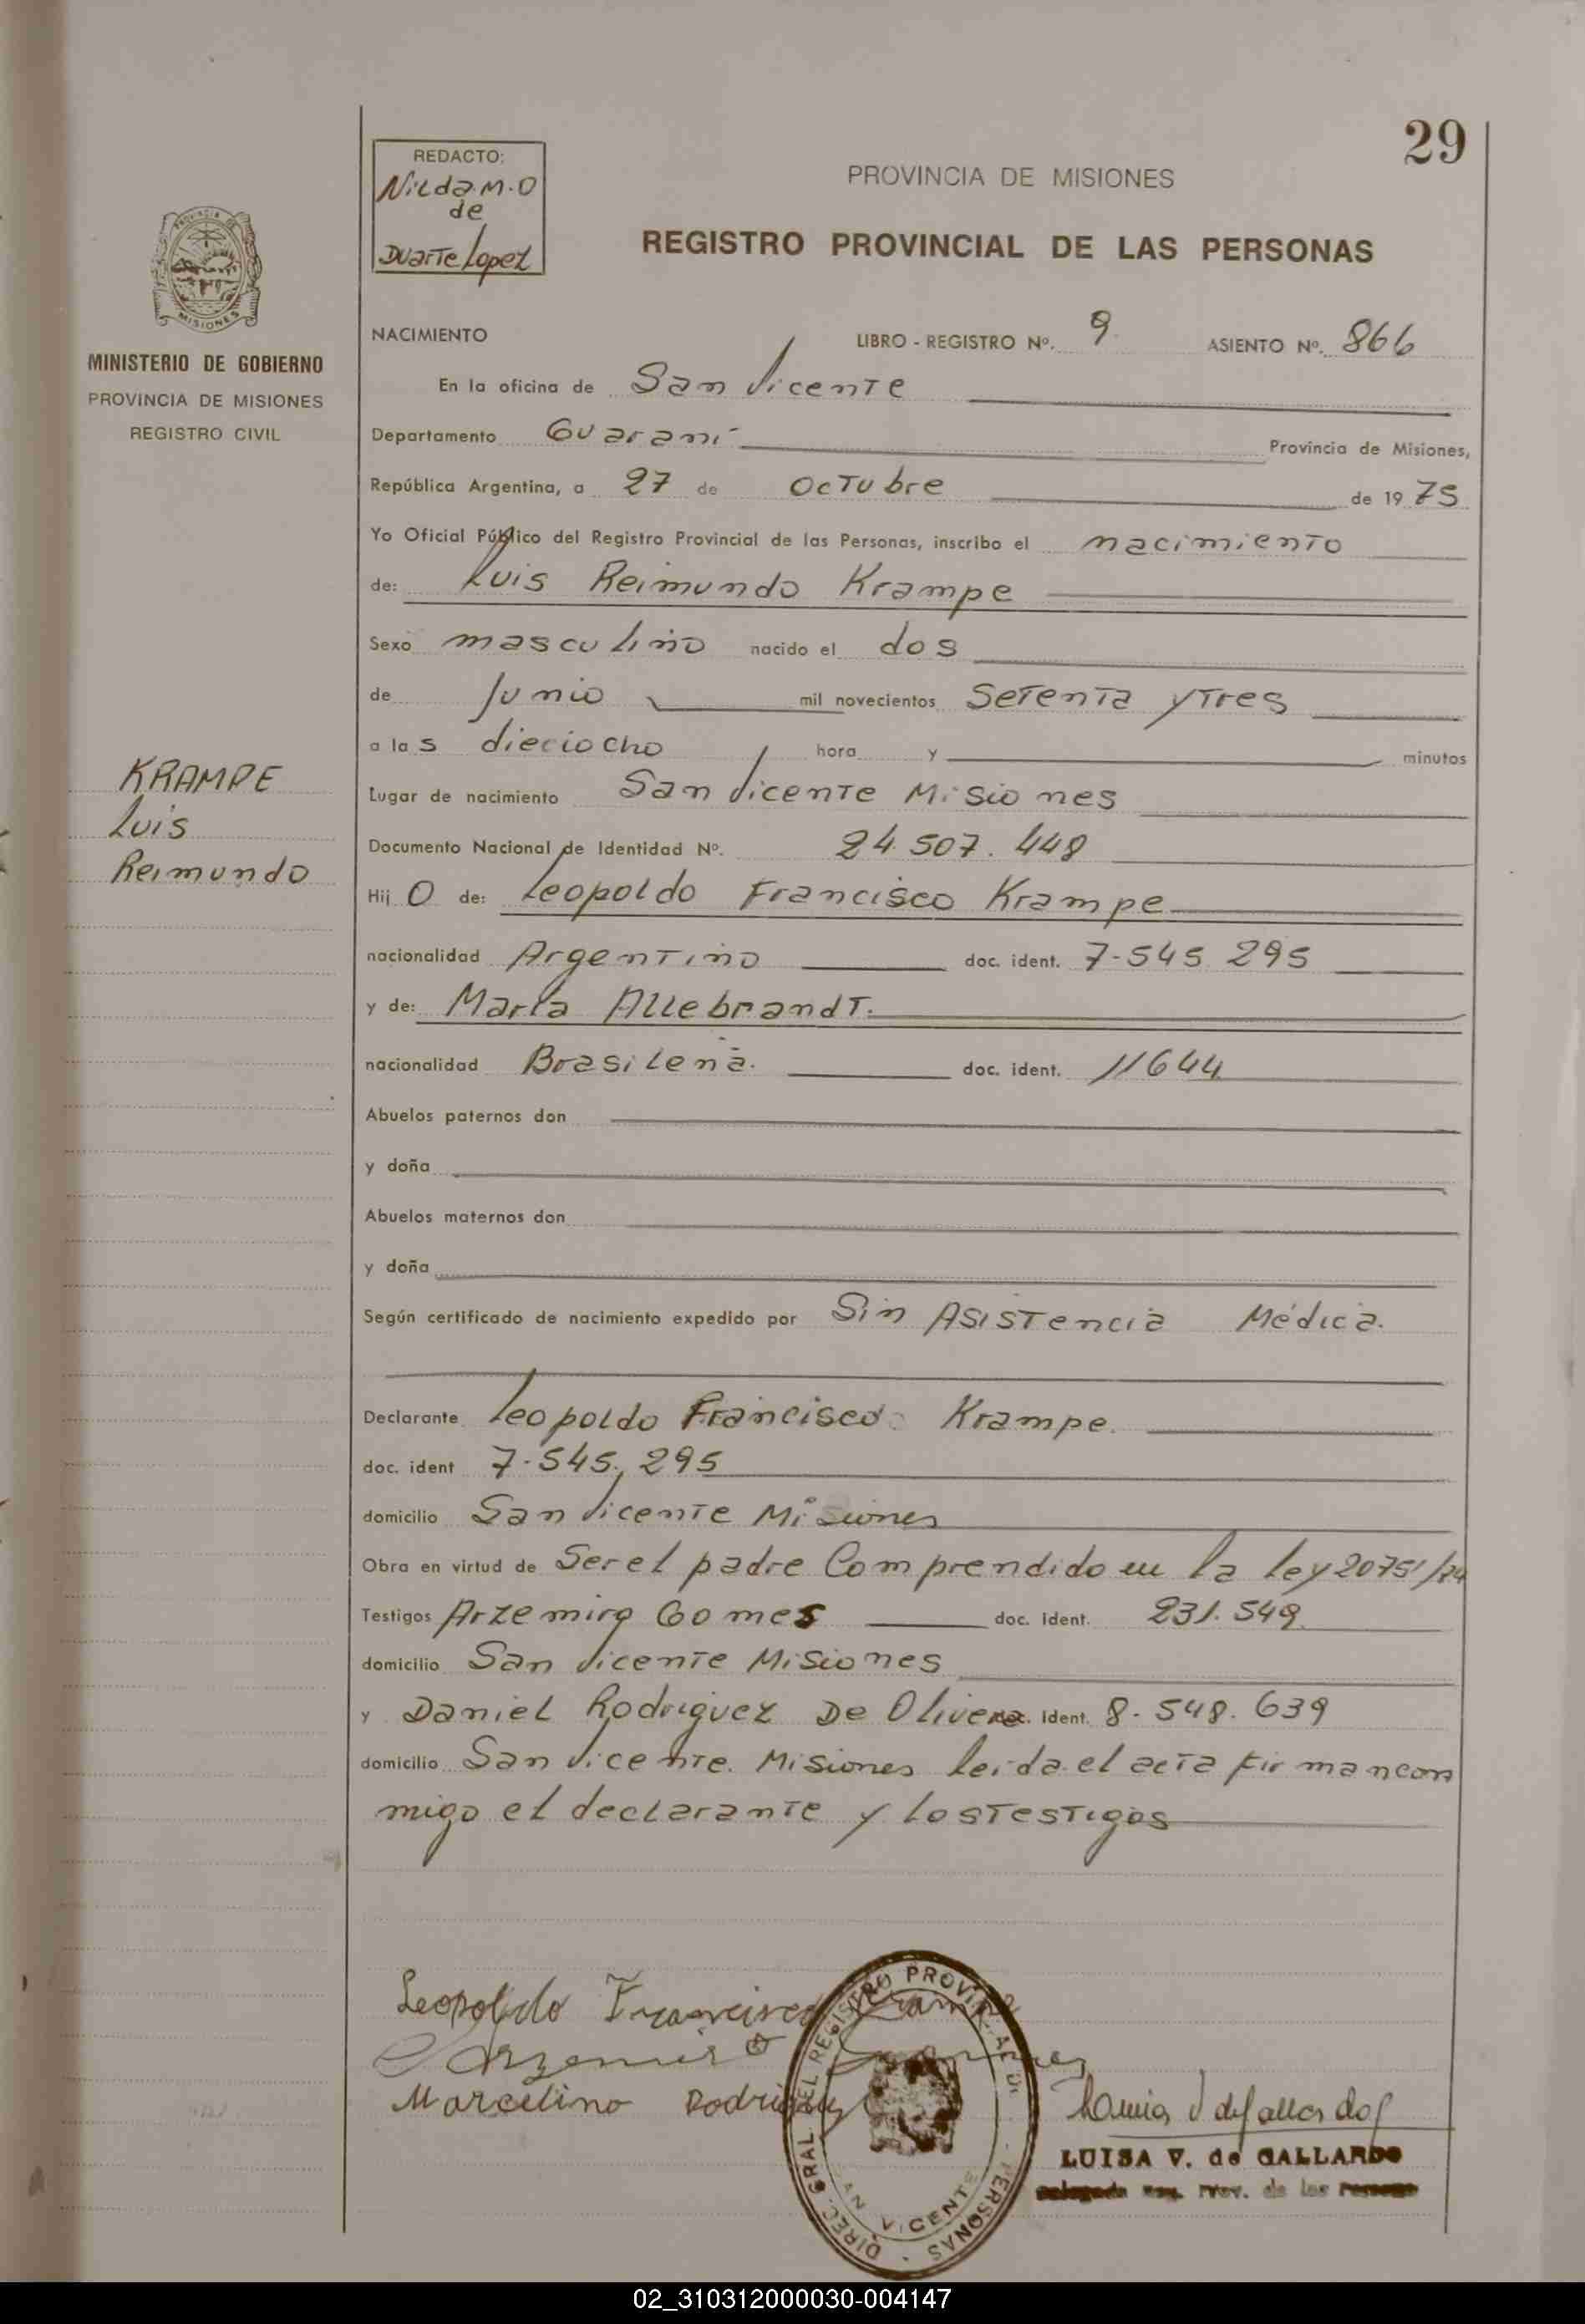 29
REDACTO:
Nilda M. O
de
Duarte Lopez
PROVINCIA DE MISIONES
REGISTRO PROVINCIAL DE LAS PERSONAS
MISIONES
MINISTERIO DE GOBIERNO
PROVINCIA DE MISIONES
REGISTRO CIVIL
NACIMIENTO LIBRO - REGISTRO Nº. 9 ASIENTO Nº. 866
En la oficina de San Vicente
Departamento Guaraní Provincia de Misiones,
República Argentina, a 27 de Octubre de 19 75
Yo Oficial Público del Registro Provincial de las Personas, inscribo el nacimiento
de: Luis Reimundo Krampe
Sexo masculino nacido el dos
de Junio mil novecientos Setenta y Tres
a las dieciocho hora y minutos
KRAMPE
Luis
Reimundo
Lugar de nacimiento San Vicente Misiones
Documento Nacional de Identidad Nº. 24.507.448
Hij O de: Leopoldo Francisco Krampe
nacionalidad Argentino doc. ident. 7.545.295
y de: María Allebrandt.
nacionalidad Brasileña. doc. ident. 11644
Abuelos paternos don
y doña
Abuelos maternos don
y doña
Según certificado de nacimiento expedido por Sin Asistencia Médica.
Declarante Leopoldo Francisco Krampe.
doc. ident 7.545.295
domicilio San Vicente Misiones
Obra en virtud de Ser el padre Comprendido en la ley 20751/74
Testigos Arzemiro Gomes doc. ident. 231.549
domicilio San Vicente Misiones
y Daniel Rodriguez De Olivera doc. ident. 8.548.639
domicilio San Vicente. Misiones leida el acta firman con
migo el declarante y los Testigos
Leopoldo Francisco Krampe
Arzemiro Gomes
Marcelino Rodriguez
DIREC. GRAL. DEL REGISTRO PROVINCIAL DE PERSONAS
SAN VICENTE
LUISA V. de GALLARDO
Delegada Reg. Prov. de las Personas
02_310312000030-004147